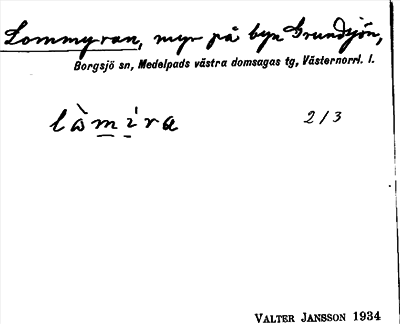 Lommyran, myr på byn Grundsjön,
Borgsjö sn, Medelpads västra domsagas tg, Västernorrl. l.
lòmíra 2/3
VALTER JANSSON 1934